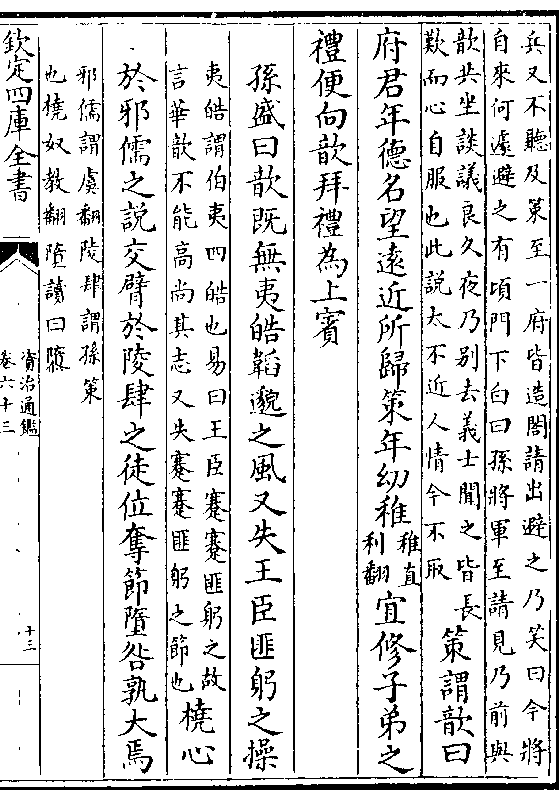 兵又不聽及䇿至一府皆造閤請出避之乃笑曰今將
自來何遽避之有頃門下白曰孫將軍至請見乃前與
歆共坐談議良久夜乃别去義士聞之皆長
歎而心自服也此説太不近人情今不取
䇿謂歆曰
府君年德名望逺近所歸䇿年幼稚
稚直
利翻
宜修子弟之
禮便向歆拜禮為上賓
孫盛曰歆既無夷皓韜邈之風又失王臣匪躬之操
夷皓謂伯夷四皓也易曰王臣蹇蹇匪躬之故
言華歆不能高尚其志又失蹇蹇匪躬之節也
橈心
於邪儒之説交臂於陵肆之徒位奪節墮咎孰大焉
邪儒謂虞翻陵肆謂孫策
也橈奴教翻墮讀曰隳
欽定四庫全書
資治通鑑
卷六十三
十三